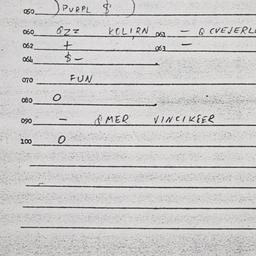 050 ) PURPL $ )
060 6ZZ VOLIRN 061 — Q CVEJERL
062 + 063 —
064 $ —
070 FUN
080 O
090 — QMER VINCIKEER
100 O